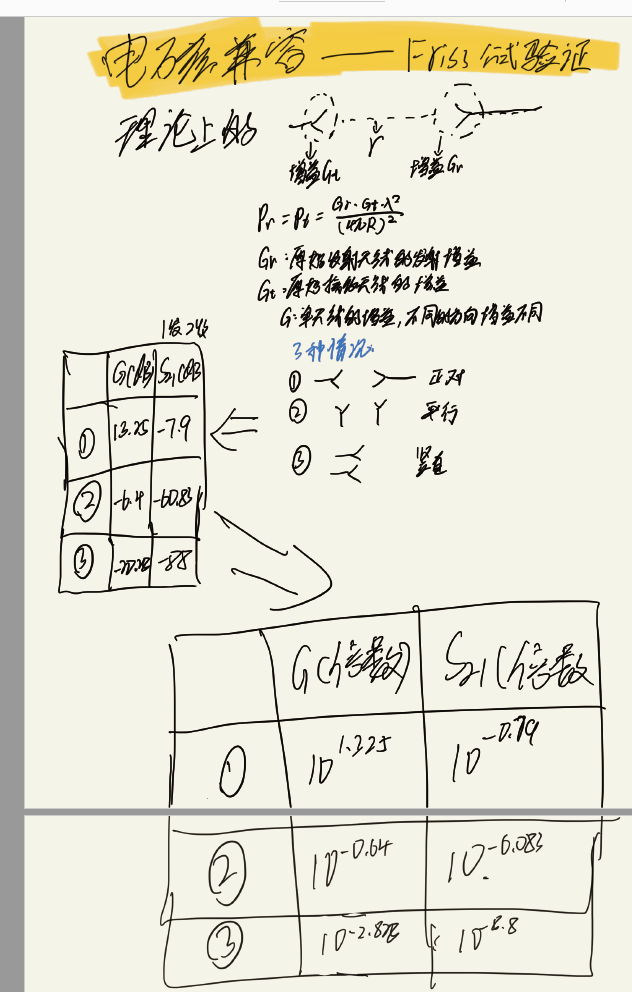 电磁兼容 —— Friss公式验证
理论上的
r
增益Gt
增益Gr
Pr = Pt = Gr·Gt·λ² / (4πR)²
Gr:原始发射天线的发射增益
Gt:原始接收天线的增益
G:单天线的增益,不同的方向增益不同
3种情况
① 正对
② 平行
③ 竖直
1发2收
G(dB) S21(dB)
① 13.25 -7.9
② -6.4 -60.83
③ -88
G(倍数) S21(倍数
① 10^1.325 10^-0.79
② 10^-0.64 10^-6.083
③ 10^-2.828 10^-8.8